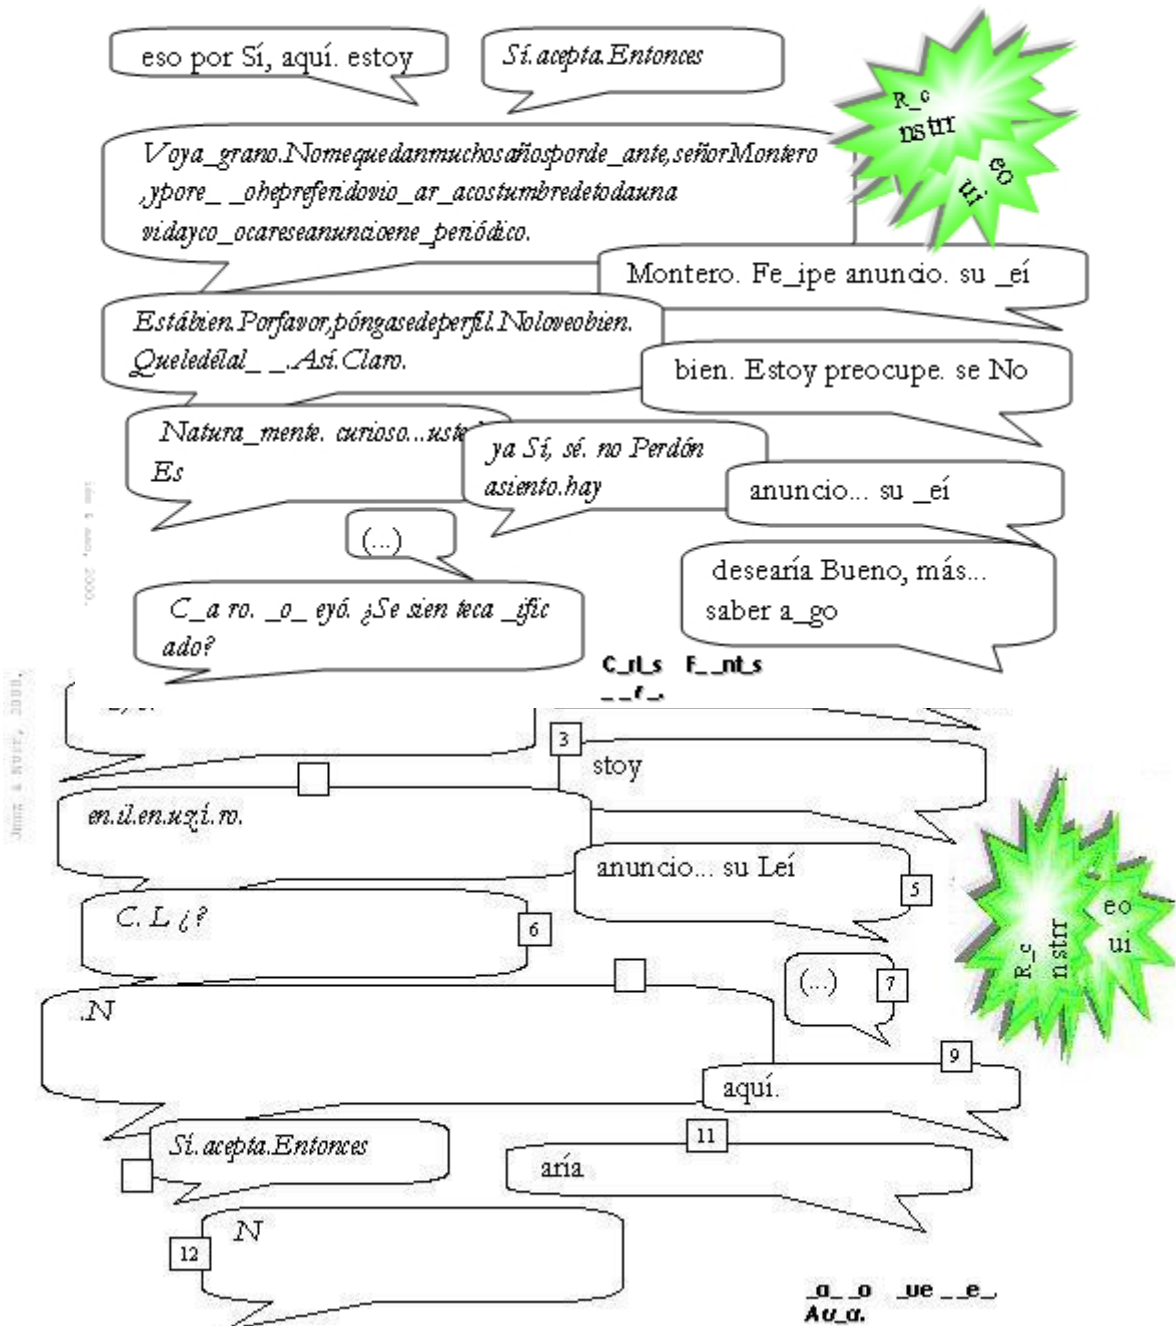 eso por Sí, aquí. estoy
Sí.acepta.Entonces
R_c
nstrr
eo
ui
Voya_grano.Nomequedanmuchosañosporde_ante,señorMontero
,ypore_ _ohepreferidovio_ar_acostumbredetodauna
vidayco_ocareseanuncioene_periódico.
Montero. Fe_ipe anuncio. su _eí
Estábien.Porfavor,póngasedeperfil.Noloveobien.
Queledélal_ _.Así.Claro.
bien. Estoy preocupe. se No
Natura_mente. curioso...uste
Es
ya Sí, sé. no Perdón
asiento.hay
anuncio... su _eí
(...)
desearía Bueno, más...
saber a_go
C_a ro. _o_ eyó. ¿Se sien teca _ific
ado?
C_rl_s F_ _nt_s
_ _r_.
3
stoy
en.il.en.uzí.ro.
anuncio... su Leí
5
C. L ¿?
6
eo
ui
R_c
nstrr
.N
(...)
7
9
aquí.
Sí.acepta.Entonces
11
aría
N
12
_a_ _o _ue_ _e_.
Au_a.